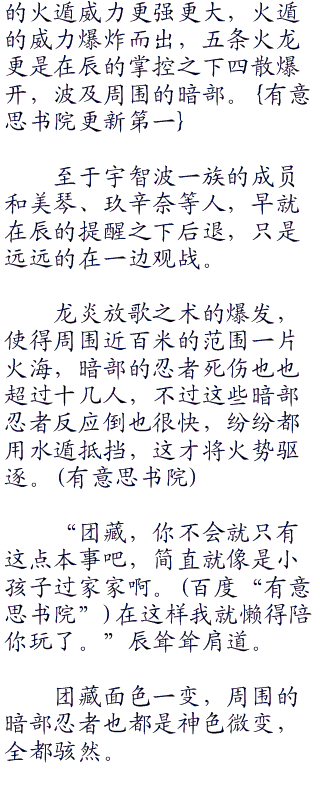 的火遁威力更强更大，火遁
的威力爆炸而出，五条火龙
更是在辰的掌控之下四散爆
开，波及周围的暗部。{有意
思书院更新第一}
至于宇智波一族的成员
和美琴、玖辛奈等人，早就
在辰的提醒之下后退，只是
远远的在一边观战。
龙炎放歌之术的爆发，
使得周围近百米的范围一片
火海，暗部的忍者死伤也也
超过十几人，不过这些暗部
忍者反应倒也很快，纷纷都
用水遁抵挡，这才将火势驱
逐。(有意思书院)
“团藏，你不会就只有
这点本事吧，简直就像是小
孩子过家家啊。(百度“有意
思书院”)在这样我就懒得陪
你玩了。”辰耸耸肩道。
团藏面色一变，周围的
暗部忍者也都是神色微变，
全都骇然。